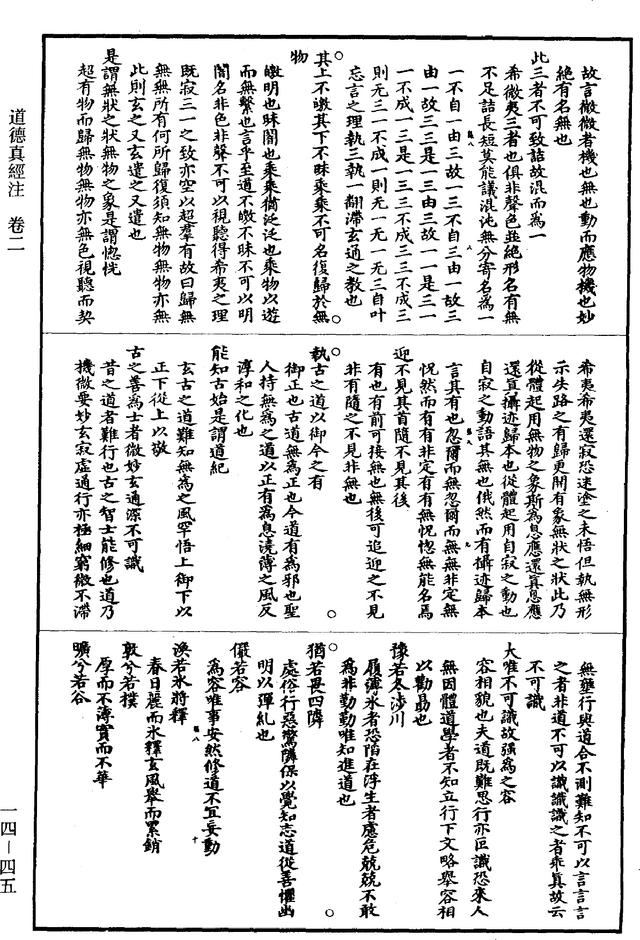 道德真經注　卷二
故言微微者機也無也動而應物機也妙
絶有名無也
此三者不可致詰故混而為一
希微夷三者也俱非聲色並絶形名有無
不足詰長短莫能議混沌無分寄名為一
一不自一由三故一三不自三由一故三
由一故三三是一三由三故一一是三一
一不成一三是一三三不成三三不成三
則无三一不成一則无一无一无三自叶
忘言之理執三執一翻滯玄通之教也
其上不皦其下不昧乘乘不可名復歸於無
物
皦明也昧闇也乘乘猶泛泛也乘物以遊
而無繫也言乎至道不皦不昧不可以明
闇名非色非聲不可以視聽得希夷之理
既寂三一之致亦空以超羣有故曰歸無
無無所有何所歸復須知無物無物亦無
此則玄之又玄遣之又遣也
是謂無狀之狀無物之象是謂惚恍
超有物而歸無物無物亦無色視聽而契
希夷希夷還寂恐迷塗之未悟但執無形
示失路之有歸更開有象無狀之狀此乃
從體起用無物之象斯為息應還真息應
還真攝迹歸本也從體起用自寂之動也
自寂之動語其無也俄然而有攝迹歸本
言其有也忽爾而無忽爾而無無非定無
怳然而有有非定有有無怳惚無能名焉
迎不見其首隨不見其後
有也有前可接無也無後可追迎之不見
非有隨之不見非無也
執古之道以御今之有
御正也古道無為正也今道有為邪也聖
人持無為之道以正有為息澆薄之風反
淳和之化也
能知古始是謂道紀
玄古之道難知無為之風罕悟上御下以
正下從上以敬
古之善為士者微妙玄通深不可識
昔之道者難行也古之智士能修也道乃
機微要妙玄寂虛通行亦極細窮微不滯
無壅行與道合不測難知不可以言言言
之者非道不可以識識識之者乖真故云
不可識
夫唯不可識故强為之容
容相貌也夫道既難思行亦叵識恐來人
無因體道學者不知立行下文略舉容相
以勸勗也
豫若冬涉川
履薄氷者恐陷在浮生者慮危兢兢不敢
為非勤勤唯知進道也
猶若畏四隣
處俗行惡驚隣保以覺知志道從善懼幽
明以彈糺也
儼若容
為容唯事安然修道不宜妄動
渙若氷將釋
春日麗而氷釋玄風舉而累銷
敦兮若樸
厚而不薄實而不華
曠兮若谷
一四－四五